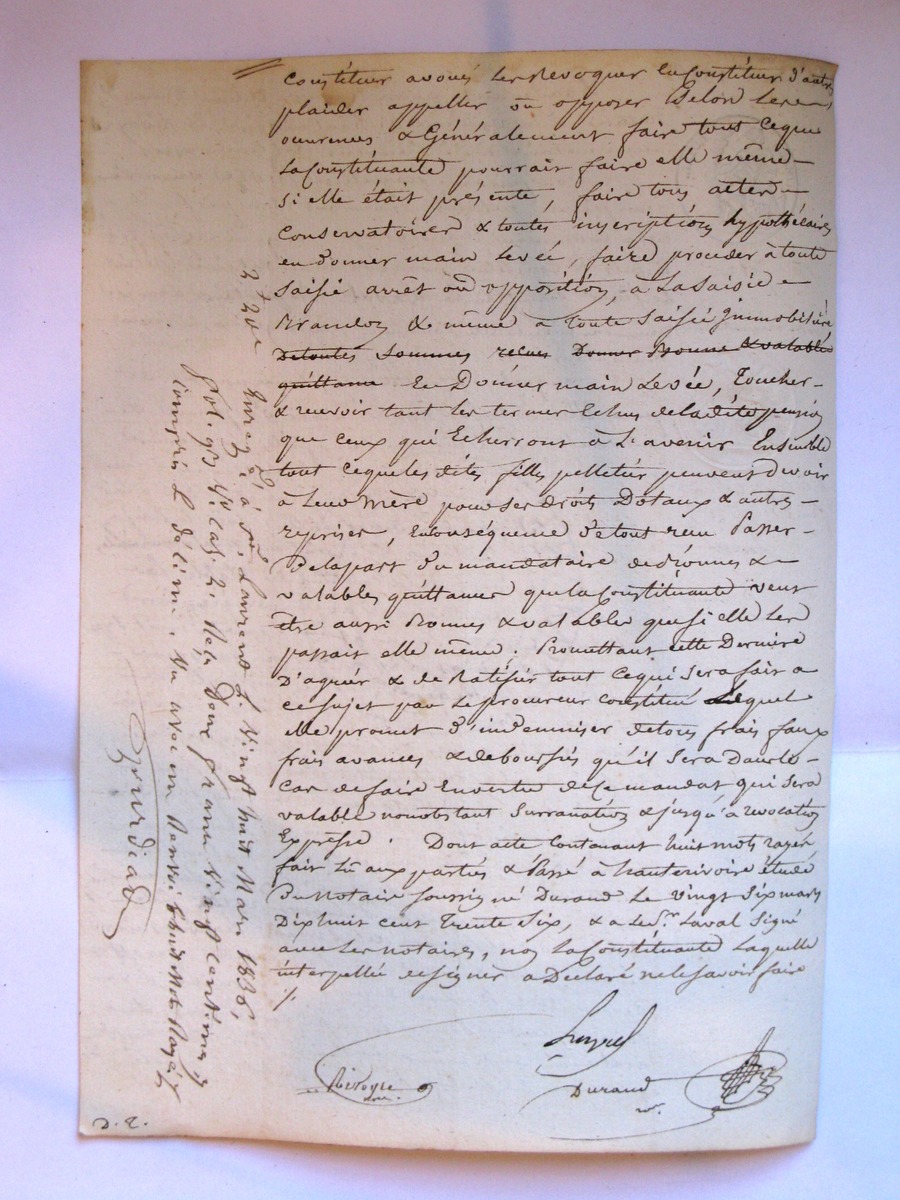 Constituer avoués les Revoquer En Constituer d'autres
plaider appeller ou opposer Selon les
ocurences & Généralement faire tout Ceque
La Constituante pourrait faire elle même
si elle était présente, faire tous actes
Conservatoires & toutes inscriptions hypothécaires
en Donner main levée, faire proceder à toute
Saisie arrêt ou opposition, à La Saisie
Brandon & même à toute Saisie Immobilière
De toutes Sommes recues Donner Bonne & valable
quittance En Donner main Levée, Toucher
& recevoir tant les termes Echus de ladite pension
que ceux qui Echerront à L'avenir Ensemble
tout Ceque les dites filles pelletier peuvent devoir
à Leur Mère pour Ses Droits Dotaux & autres
reprises, En Conséquence De tout reçu Passer
De la part Du mandataire de Bonnes &
valables quittances que la Constituante veut
être aussi Bonnes & valables que si elle Les
passait elle même. Promettant cette Dernière
D'agréer & de Ratifier tout Cequi Sera fait a
ce Sujet par Le procureur constitué Lequel
elle promet D'indemniser de tous frais faux
frais avances & deboursés qu'il Sera Dans le
Cas de faire En vertu de Ce mandat qui Sera
valable nonobstant Surranation & jusqu'à revocation
Expresse. Dont acte Contenant huit mots rayés
fait lû aux parties & Passé à hauterivoire étude
Du Notaire Soussigné Durand Le vingt Six mars
Dix huit cent Trente Six, & a Le Sr. Laval Signé
avec Les notaires, non La Constituante Laquelle
interpellée de signer a Declaré ne le Savoir faire
Durand
2f 20c
Enreg. à St. Laurent L. Vingt huit Mars 1836,
fol. 93 Vo Cas. 2. Reçu Deux francs vingt centimes
compris L. décime.
D. E.